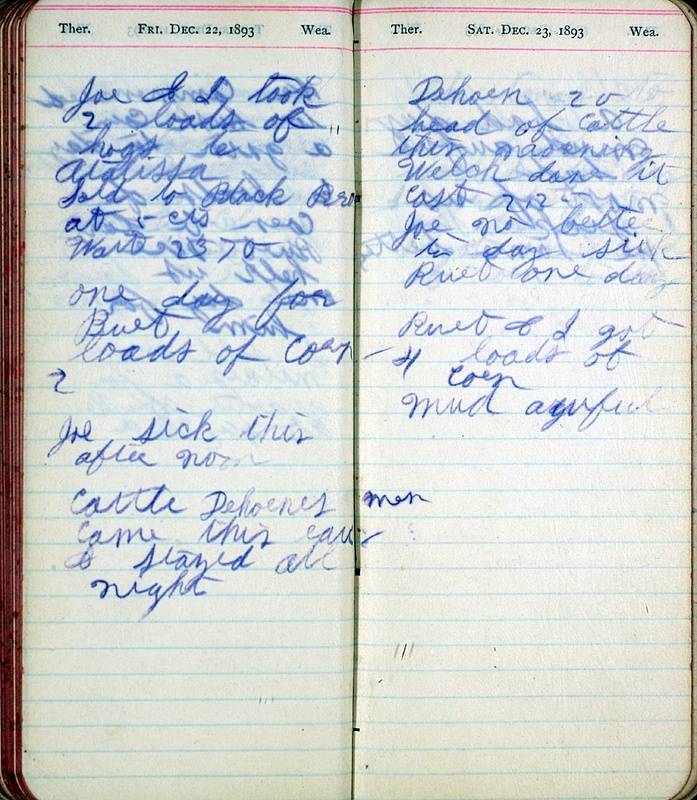 Ther. FRI. DEC. 22, 1893 Wea.
Joe & I took
2 loads of
hogs to
Atalissa
Sold to Black
at 5 cts
2370
one day for
Ruet
loads of Corn
2
Joe sick this
after noon
Cattle Dehoenes men
Came this eav
& stayed all
night
Ther. SAT. DEC. 23, 1893 Wea.
Dehoen 20
head of Cattle
this morening
Welch done it
Cost 2.12
Joe no bettee
to day sick
Ruet one day
Ruet & I got
4 loads of
Coen
Mud aguful